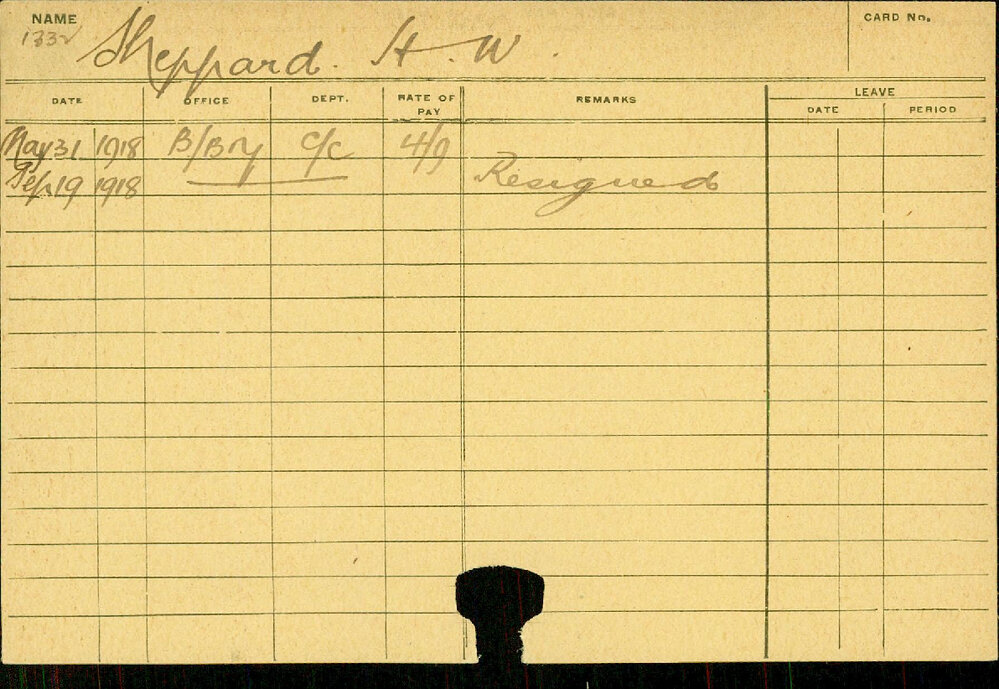 NAME
CARD No.
1332
Sheppard. H. W.
DATE OFFICE DEPT. RATE OF PAY REMARKS LEAVE
DATE PERIOD
May 31 1918 B/Bry C/C 4/9
Sep 19 1918 Resigned